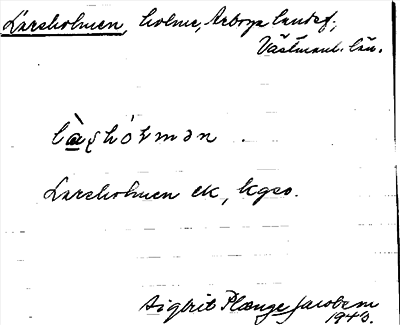 Larsholmen, holme, Arboga landsf.,
Västmanl. län.
là̱ʂhòlmən .
Larsholmen ek, kgso.
Sigbrit Plænge Jacobson
1940.